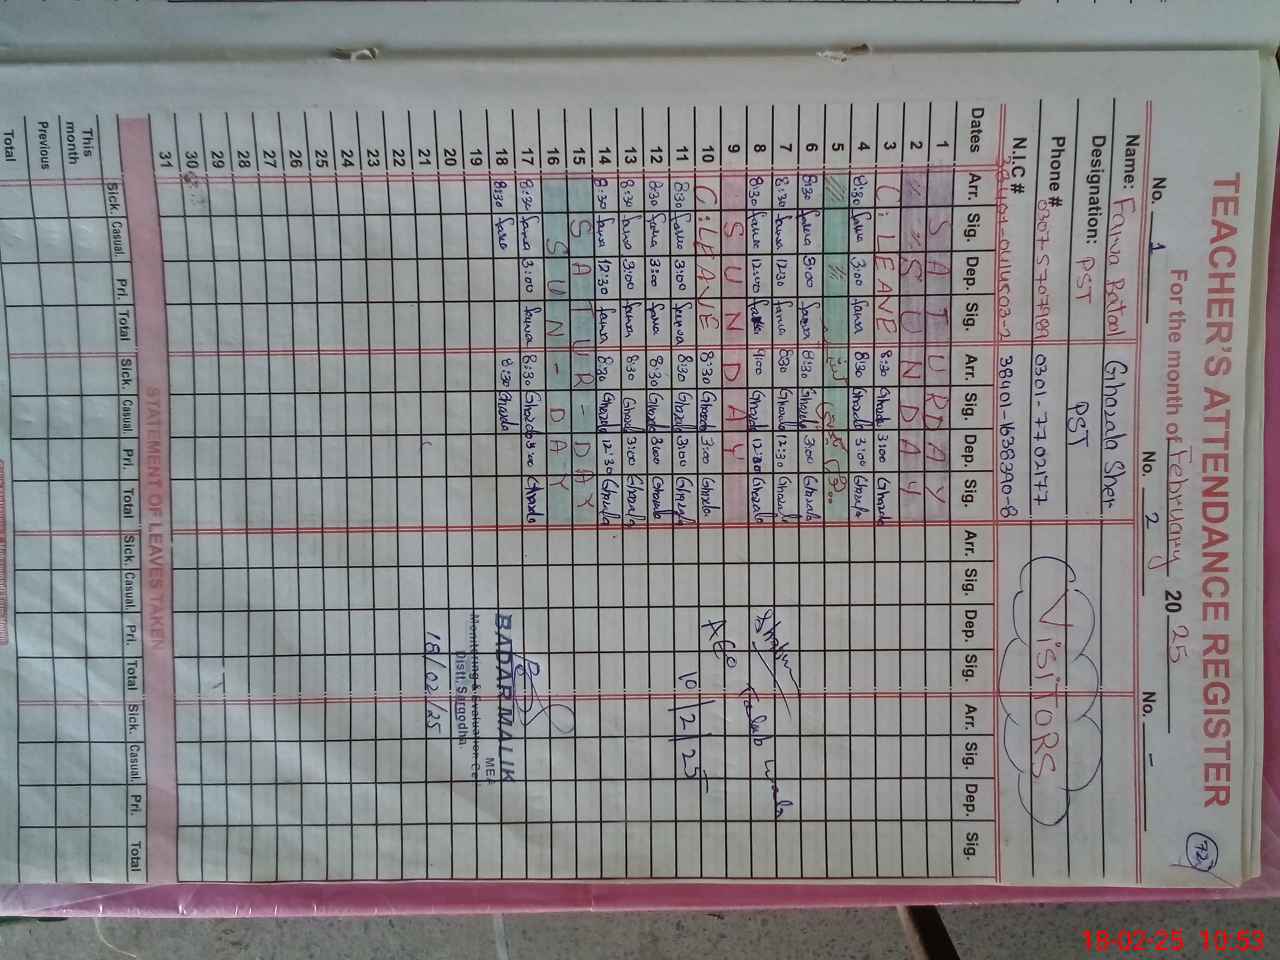 TEACHER'S ATTENDANCE REGISTER
72
For the month of February 2025
No. 1 No. 2 No. -
Name: Farwa Batool Ghazala Sher
Designation: PST PST
Phone # 0307-5707989 0301-7702177
N.I.C # 38401-1638390-8
VISITORS
Dates Arr. Sig. Dep. Sig. Arr. Sig. Dep. Sig. Arr. Sig. Dep. Sig. Arr. Sig. Dep. Sig.
1 S A T U R D A Y
2 S U N D A Y
3 C: LEAVE 8:30 Ghazala 3:00 Ghazala
4 8:30 Farwa 3:00 Farwa 8:30 Ghazala 3:00 Ghazala
5
6 8:30 Farwa 3:00 Farwa 8:30 Ghazala 3:00 Ghazala
7 8:30 Farwa 12:30 Farwa 8:30 Ghazala 12:30 Ghazala
8 8:30 Farwa 12:00 Farwa 9:00 Ghazala 12:30 Ghazala
9 S U N D A Y
10 C: LEAVE 8:30 Ghazala 3:00 Ghazala
AEO
11 8:30 Farwa 3:00 Farwa 8:30 Ghazala 3:00 Ghazala
10/2/25
12 8:30 Farwa 3:00 Farwa 8:30 Ghazala 3:00 Ghazala
13 8:30 Farwa 3:00 Farwa 8:30 Ghazala 3:00 Ghazala
14 8:30 Farwa 12:30 Farwa 8:30 Ghazala 12:30 Ghazala
15 S A T U R - D A Y
16 S U N - D A Y
17 8:30 Farwa 3:00 Farwa 8:30 Ghazala 3:00 Ghazala
18 8:30 Farwa 8:30 Ghazala
BADAR MALIK
MEA
19
Monitoring & Evaluation Ce
20
Distt. Sargodha
21
18/02/25
22
23
24
25
26
27
28
29
30
31
STATEMENT OF LEAVES TAKEN
Sick. Casual. Pri. Total Sick. Casual. Pri. Total Sick. Casual. Pri. Total Sick. Casual. Pri. Total
This month
Previous
Total
18-02-25 10:53